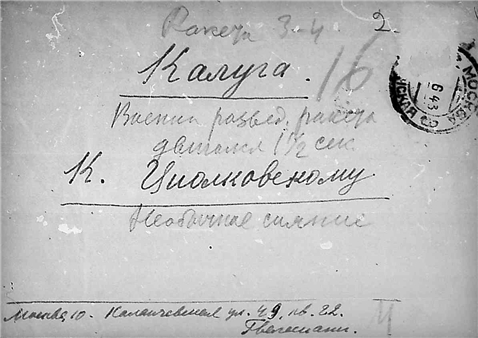 Ракета 3-4 2.
Калуга. 16
Военн развед. ракета
двигался 1 1/2 сек
К. Циолковскому
Необычное сияние
Москва, 10. Каланчевская ул. 49, кв. 22.
МОСКВА